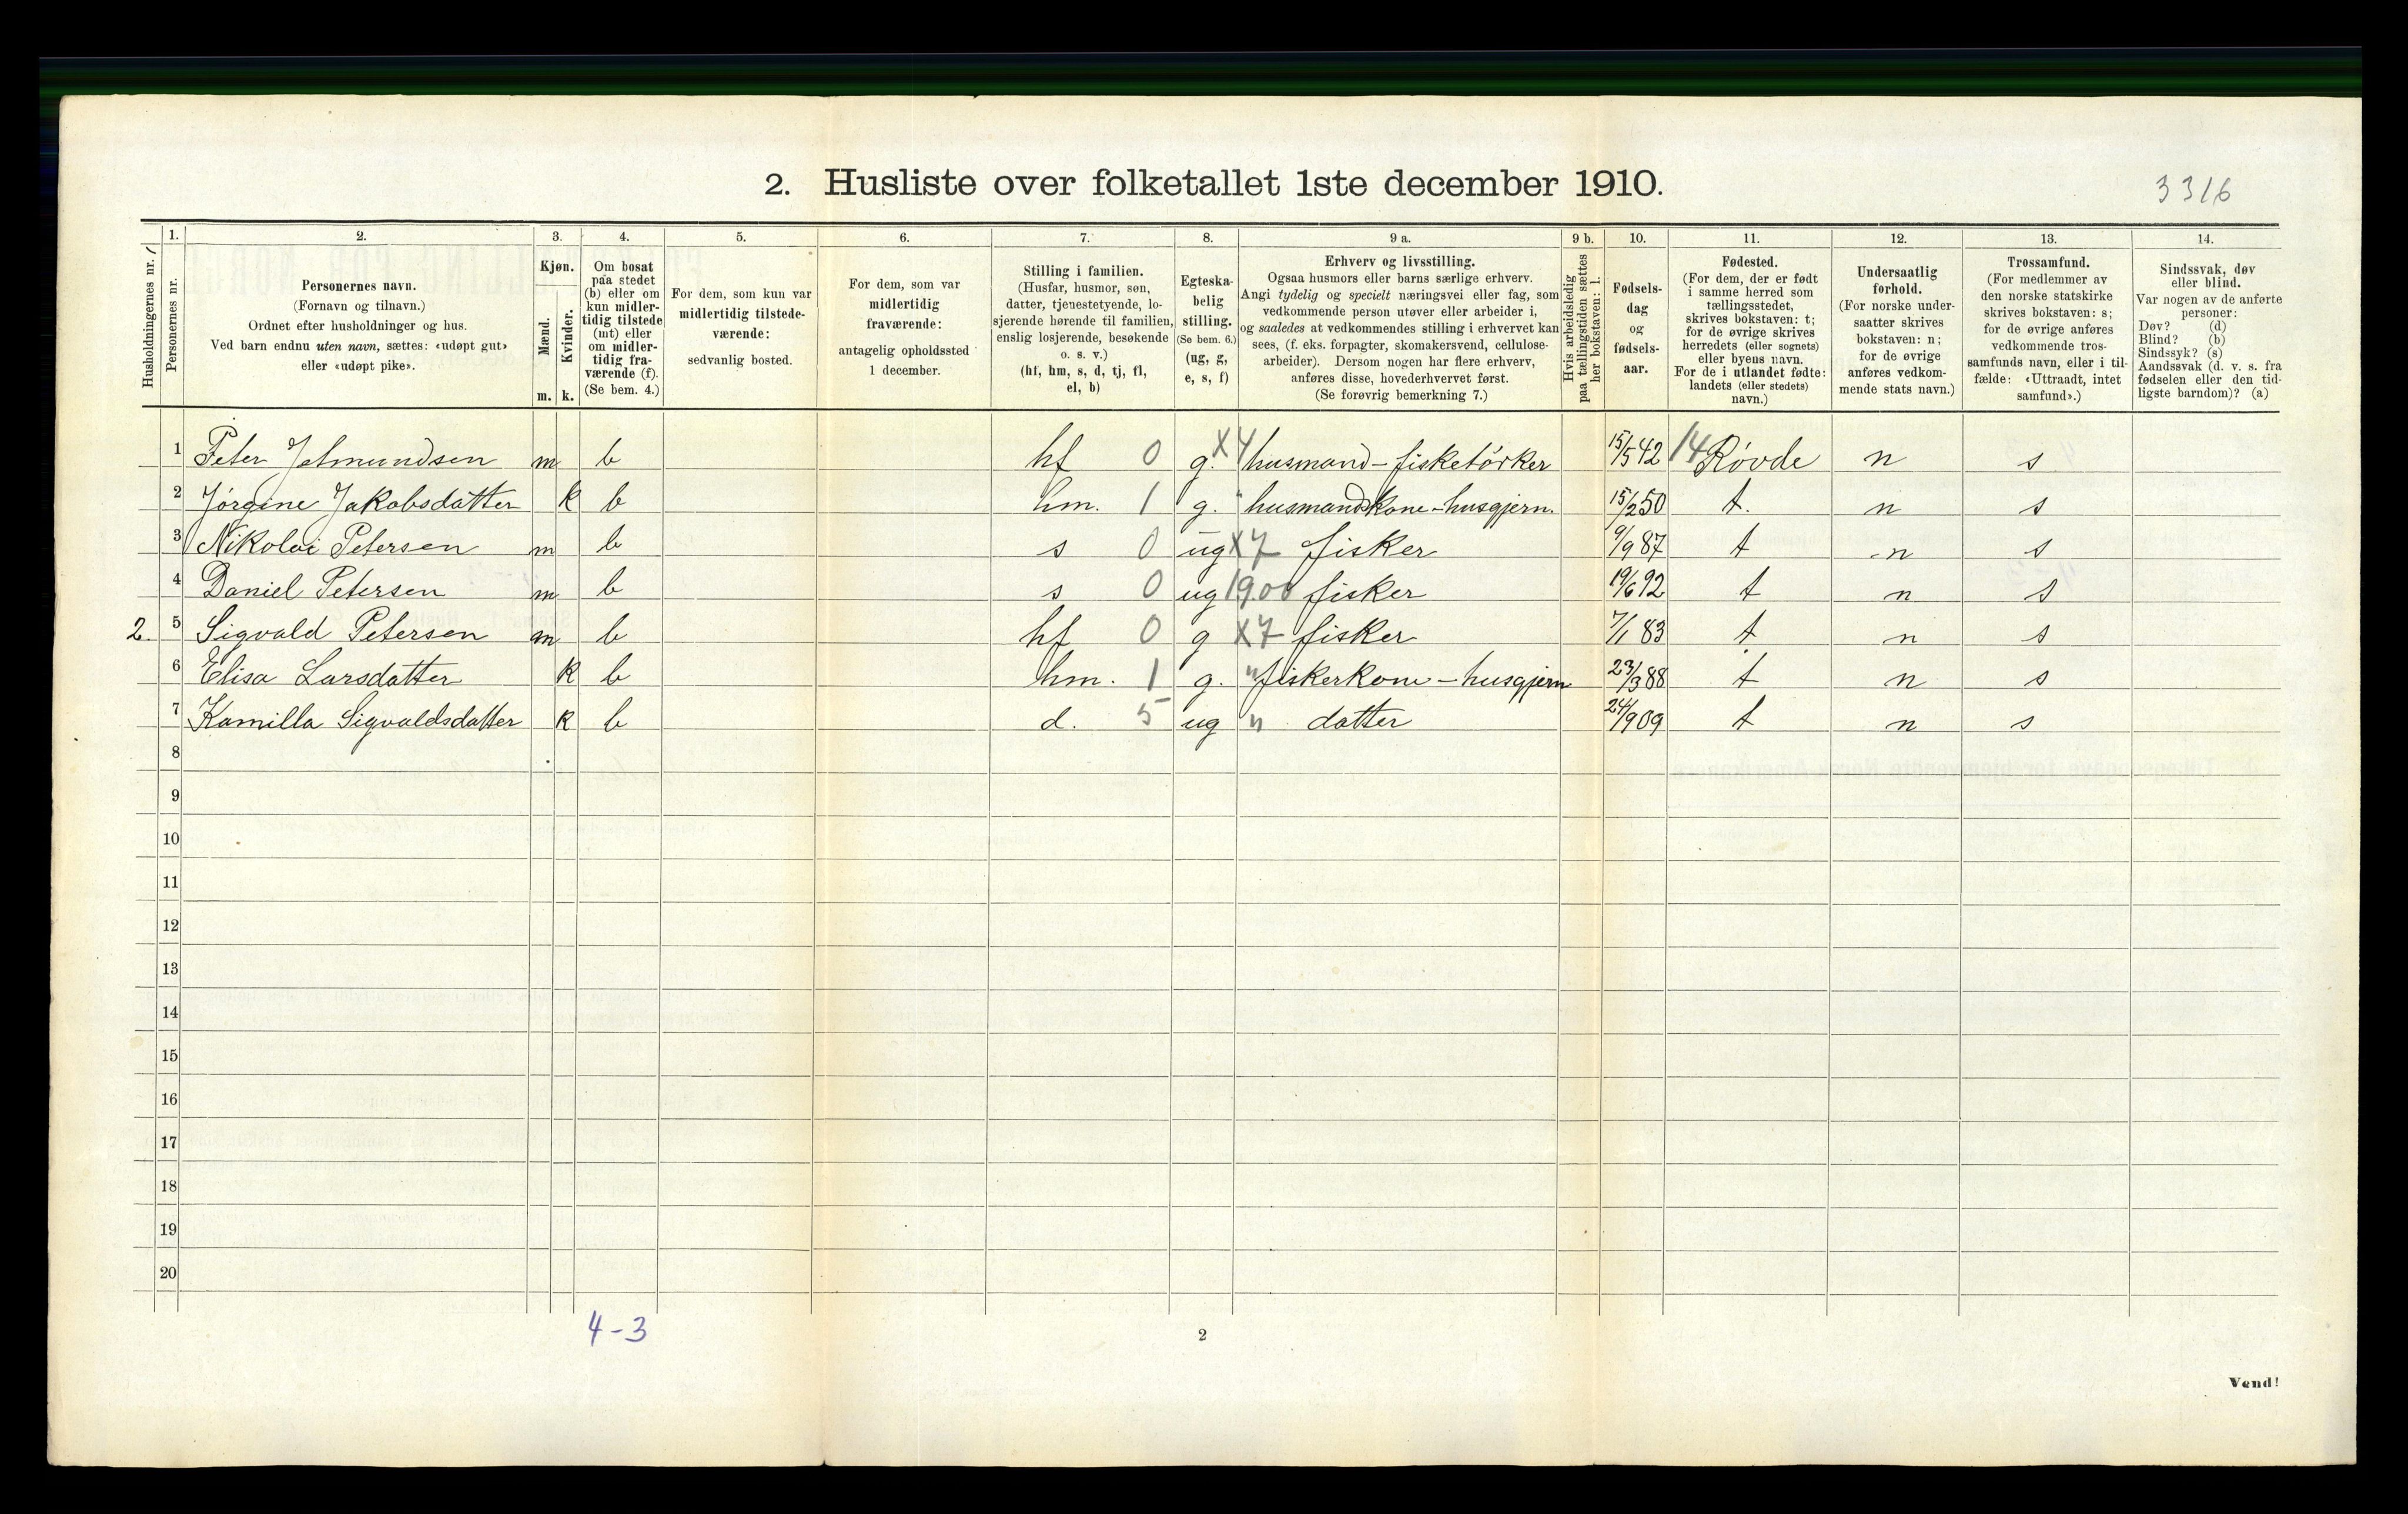 2. Husliste over folketallet 1ste december 1910.
3316
Husholdningernes nr.
1.
Personernes nr.
2.
Personernes navn.
(Fornavn og tilnavn.)
Ordnet efter husholdninger og hus.
Ved barn endnu uten navn, sættes: «udøpt gut»
eller «udøpt pike».
3.
Kjøn.
Mænd.
Kvinder.
m. k.
4.
Om bosat
paa stedet
(b) eller om
kun midler-
tidig tilstede
(mt) eller
om midler-
tidig fra-
værende (f).
(Se bem. 4.)
5.
For dem, som kun var
midlertidig tilstede-
værende:
sedvanlig bosted.
6.
For dem, som var
midlertidig
fraværende:
antagelig opholdssted
1 december.
7.
Stilling i familien.
(Husfar, husmor, søn,
datter, tjenestetyende, lo-
sjerende hørende til familien,
enslig losjerende, besøkende
o. s. v.)
(hf, hm, s, d, tj, fl,
el, b)
8.
Egteska-
belig
stilling.
(Se bem. 6.)
(ug, g,
e, s, f)
9 a.
Erhverv og livsstilling.
Ogsaa husmors eller barns særlige erhverv.
Angi tydelig og specielt næringsvei eller fag, som
vedkommende person utøver eller arbeider i,
og saaledes at vedkommendes stilling i erhvervet kan
sees, (f. eks. forpagter, skomakersvend, cellulose-
arbeider). Dersom nogen har flere erhverv,
anføres disse, hovederhvervet først.
(Se forøvrig bemerkning 7.)
9 b.
Hvis arbeidsledig
paa tællingstiden sættes
her bokstaven: l.
10.
Fødsels-
dag
og
fødsels-
aar.
11.
Fødested.
(For dem, der er født
i samme herred som
tællingsstedet,
skrives bokstaven: t;
for de øvrige skrives
herredets (eller sognets)
eller byens navn.
For de i utlandet fødte:
landets (eller stedets)
navn.)
12.
Undersaatlig
forhold.
(For norske under-
saatter skrives
bokstaven: n;
for de øvrige
anføres vedkom-
mende stats navn.)
13.
Trossamfund.
(For medlemmer av
den norske statskirke
skrives bokstaven: s;
for de øvrige anføres
vedkommende tros-
samfunds navn, eller i til-
fælde: «Uttraadt, intet
samfund».)
14.
Sindssvak, døv
eller blind.
Var nogen av de anførte
personer:
Døv? (d)
Blind? (b)
Sindssyk? (s)
Aandssvak (d. v. s. fra
fødselen eller den tid-
ligste barndom)? (a)
1 Peter Jetmundsen m b hf 0 g. X4 husmand - fisketörker 15/5 42 14 Røvde n s
2 Jørgine Jakobsdatter k b hm. 1 g. " husmandskone - husgjern. 15/2 50 t. n s
3 Nikolai Petersen m b s 0 ug X7 fisker 9/9 87 t n s
4 Daniel Petersen m b s 0 ug 1900 fisker 19/6 92 t n s
2. 5 Sigvald Petersen m b hf 0 g X7 fisker 7/1 83 t n s
6 Elisa Larsdatter k b hm. 1 g. " fiskerkone - husgjern 23/3 88 t n s
7 Kamilla Sigvaldsdatter k b d. 5 ug " datter 24/9 09 t n s
8
9
10
11
12
13
14
15
16
17
18
19
20
4-3
2
Vend!